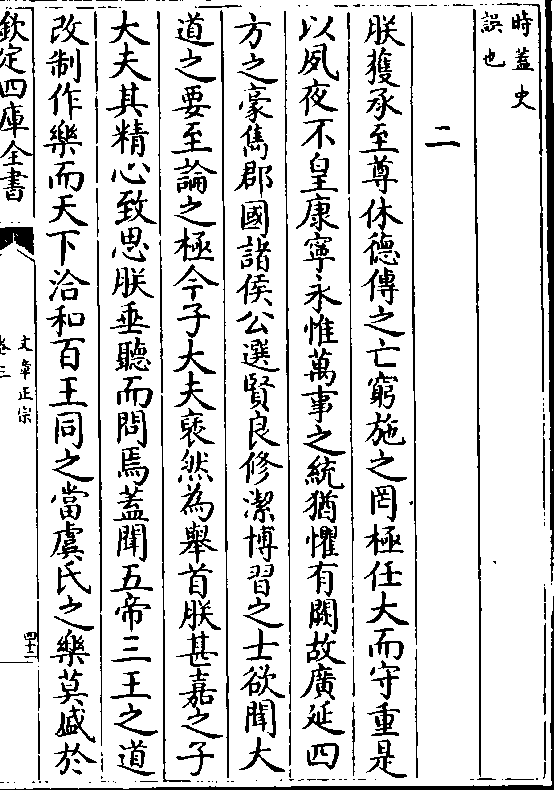 時蓋史
誤也
二
朕獲承至尊休德傳之亡窮施之罔極任大而守重是
以夙夜不皇康寧永惟萬事之統猶懼有闕故廣延四
方之豪儁郡國諸侯公選賢良修潔博習之士欲聞大
道之要至論之極今子大夫褎然為舉首朕甚嘉之子
大夫其精心致思朕垂聽而問焉蓋聞五帝三王之道
改制作樂而天下洽和百王同之當虞氏之樂莫盛於
欽定四庫全書
文章正宗
卷三
四十二